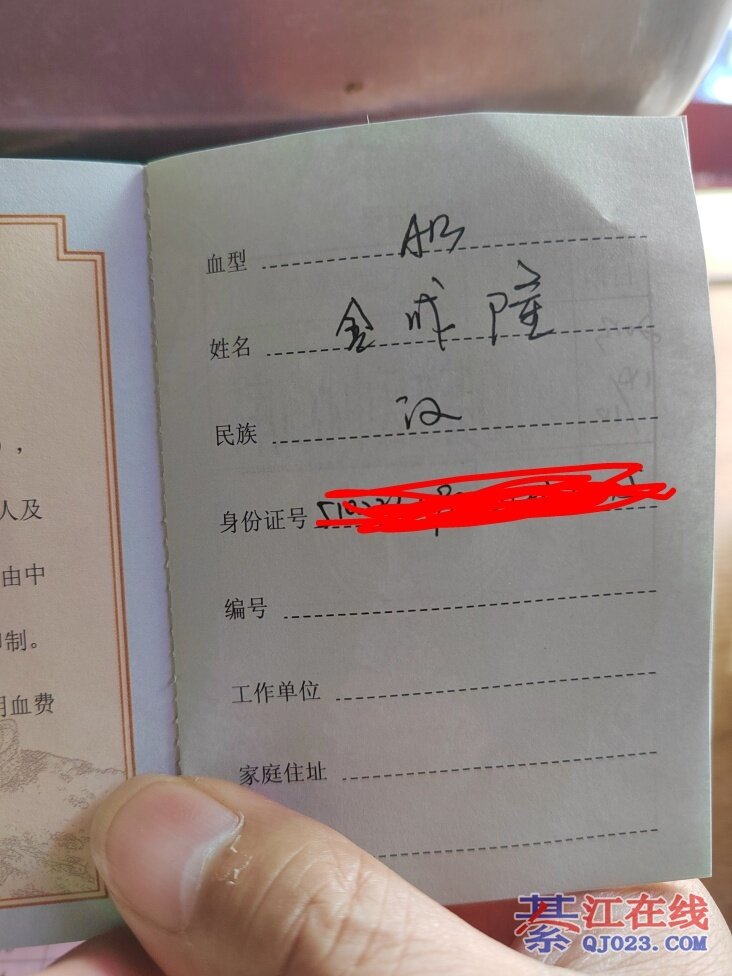 ),
人及
由中
制。
用血费
血型 AB
姓名 金成隆
民族 汉
身份证号
编号
工作单位
家庭住址
綦江在线
QJ023.COM